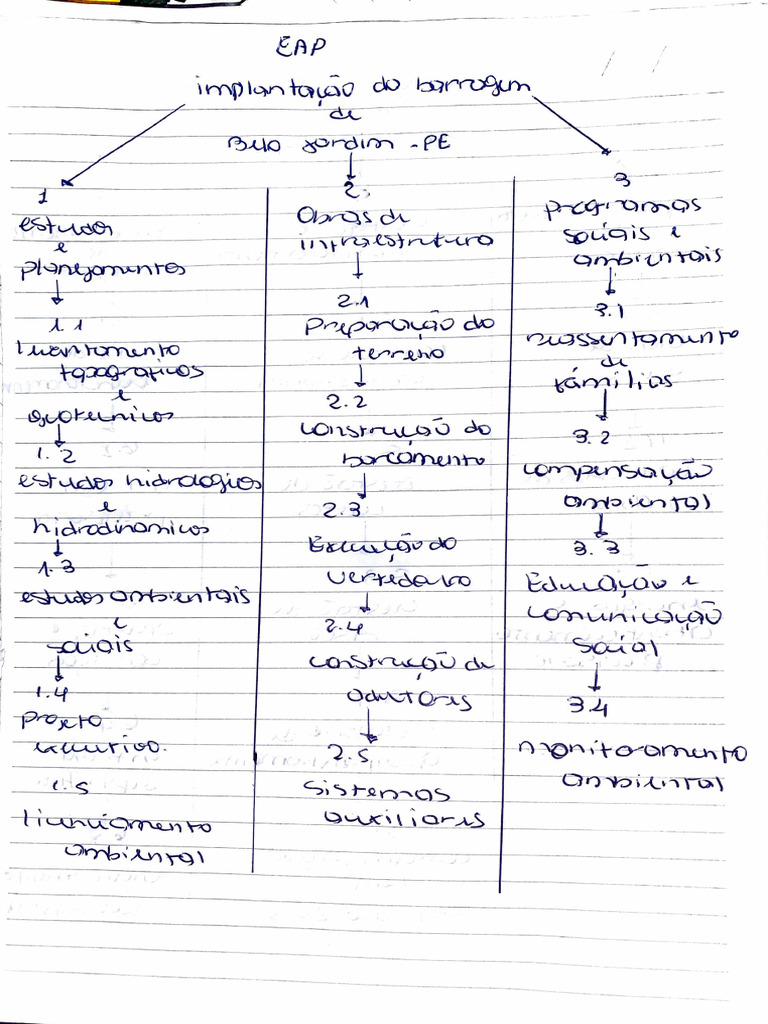 EAP
implantação do barragem
de
Belo Jardim - PE
1
estudos
e
planejamentos
1.1
levantamento
topograficos
e
geotecnicos
1.2
estudos hidrologicos
e
hidrodinamicos
1.3
estudos ambientais
e
sociais
1.4
projeto
executivo.
1.5
licenciamento
ambiental
2.
Obras de
infraestrutura
2.1
Preparação do
terreno
2.2
construção do
barramento
2.3
Execução do
vertedouro
2.4
construção de
adutoras
2.5
sistemas
auxiliares
3
programas
sociais e
ambientais
3.1
reassentamento
de
fámilias
3.2
compensação
ambiental
3.3
Educação e
comunicação
social
3.4
monitoramento
ambiental